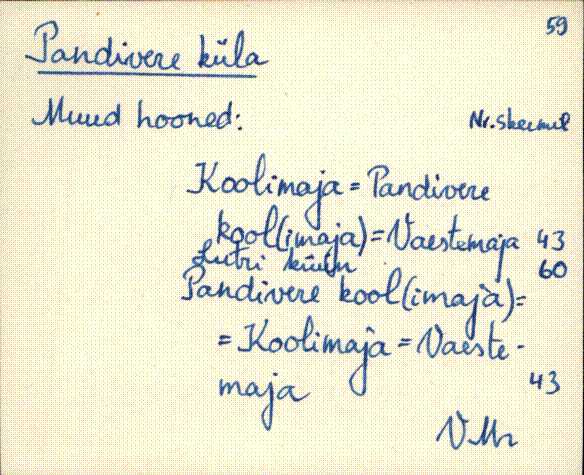 59
Pandivere küla
Muud hooned:
Nr. skeemil
Koolimaja = Pandivere
kool(imaja) = Vaestemaja 43
Lutri küün 60
Pandivere kool(imaja) =
= Koolimaja = Vaeste-
maja 43
VMr